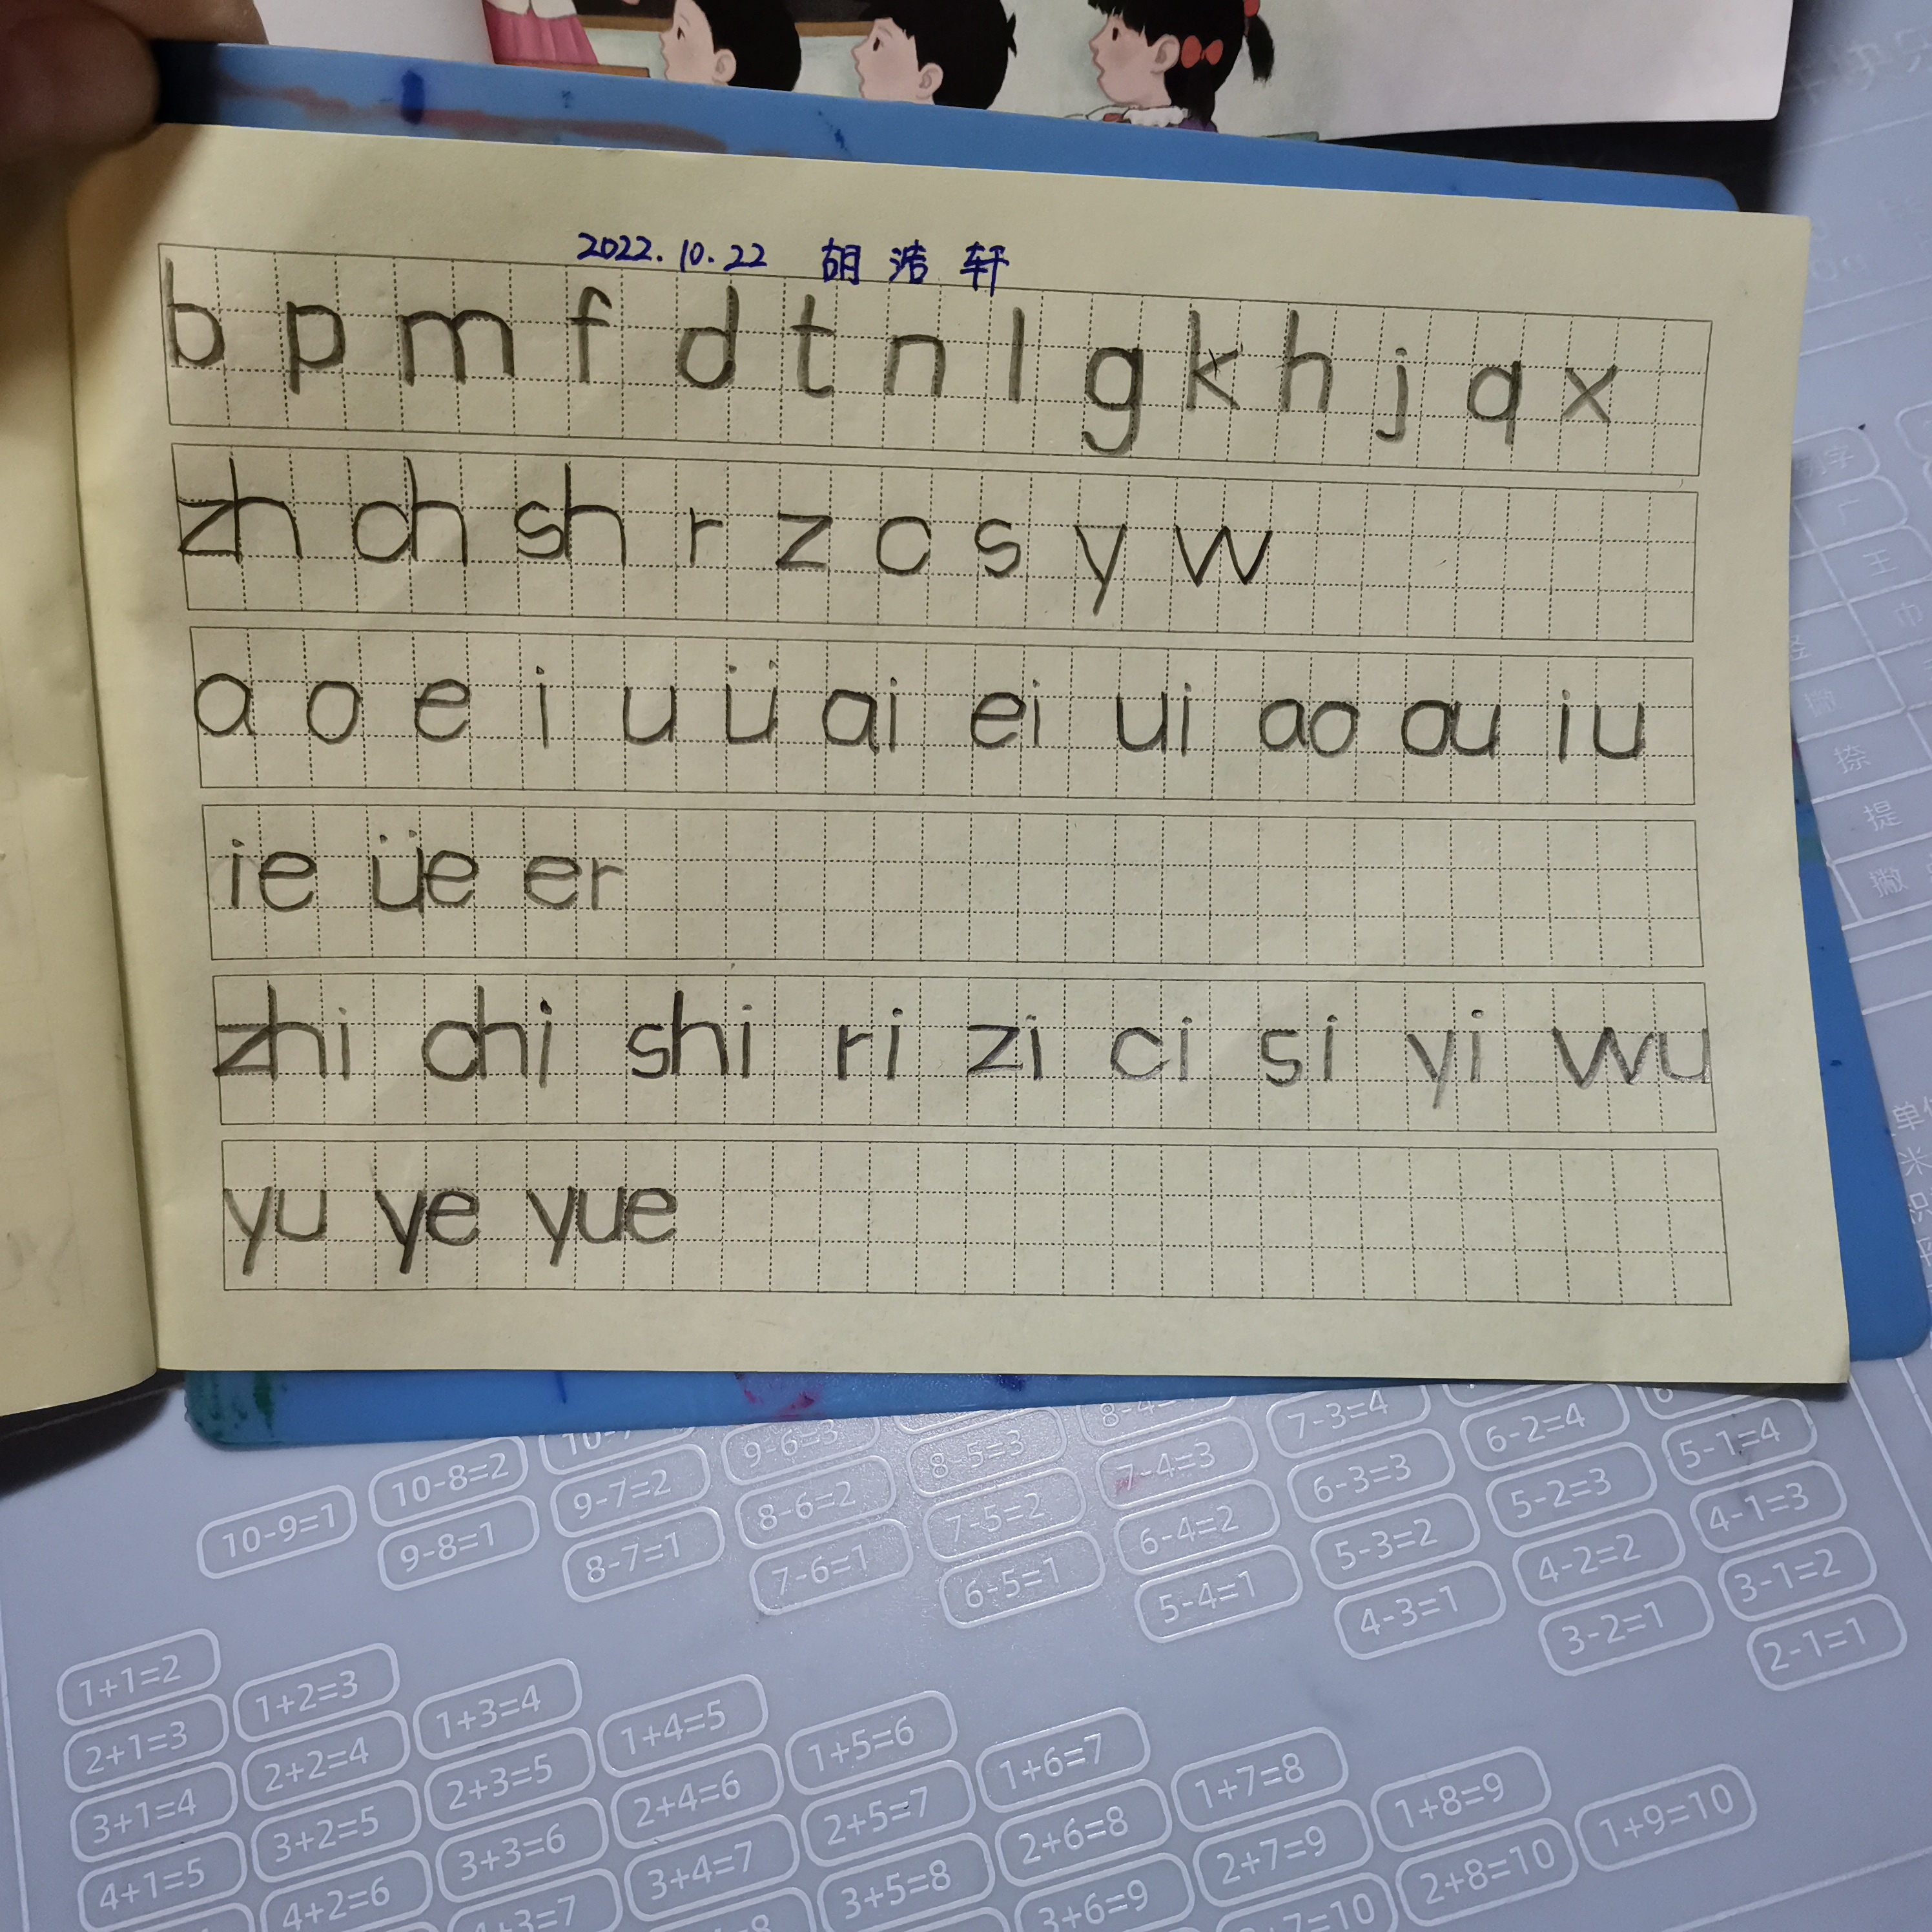 2022.10.22 胡浩轩
b p m f d t n l g k h j q x
zh ch sh r z c s y w
a o e i u ü ai ei ui ao ou iu
ie üe er
zhi chi shi ri zi ci si yi wu
yu ye yue
王
巾
撇
捺
提
撇
单
米
10-9=1 10-8=2 9-6=3 8-5=3 7-4=3 7-3=4 6-2=4 5-1=4
9-8=1 9-7=2 8-6=2 7-5=2 6-4=2 6-3=3 5-2=3 4-1=3
8-7=1 7-6=1 6-5=1 5-4=1 5-3=2 4-2=2 3-1=2
4-3=1 3-2=1 2-1=1
1+1=2 1+2=3 1+3=4 1+4=5 1+5=6 1+6=7 1+7=8 1+8=9 1+9=10
2+1=3 2+2=4 2+3=5 2+4=6 2+5=7 2+6=8 2+7=9 2+8=10
3+1=4 3+2=5 3+3=6 3+4=7 3+5=8 3+6=9
4+1=5 4+2=6 4+3=7